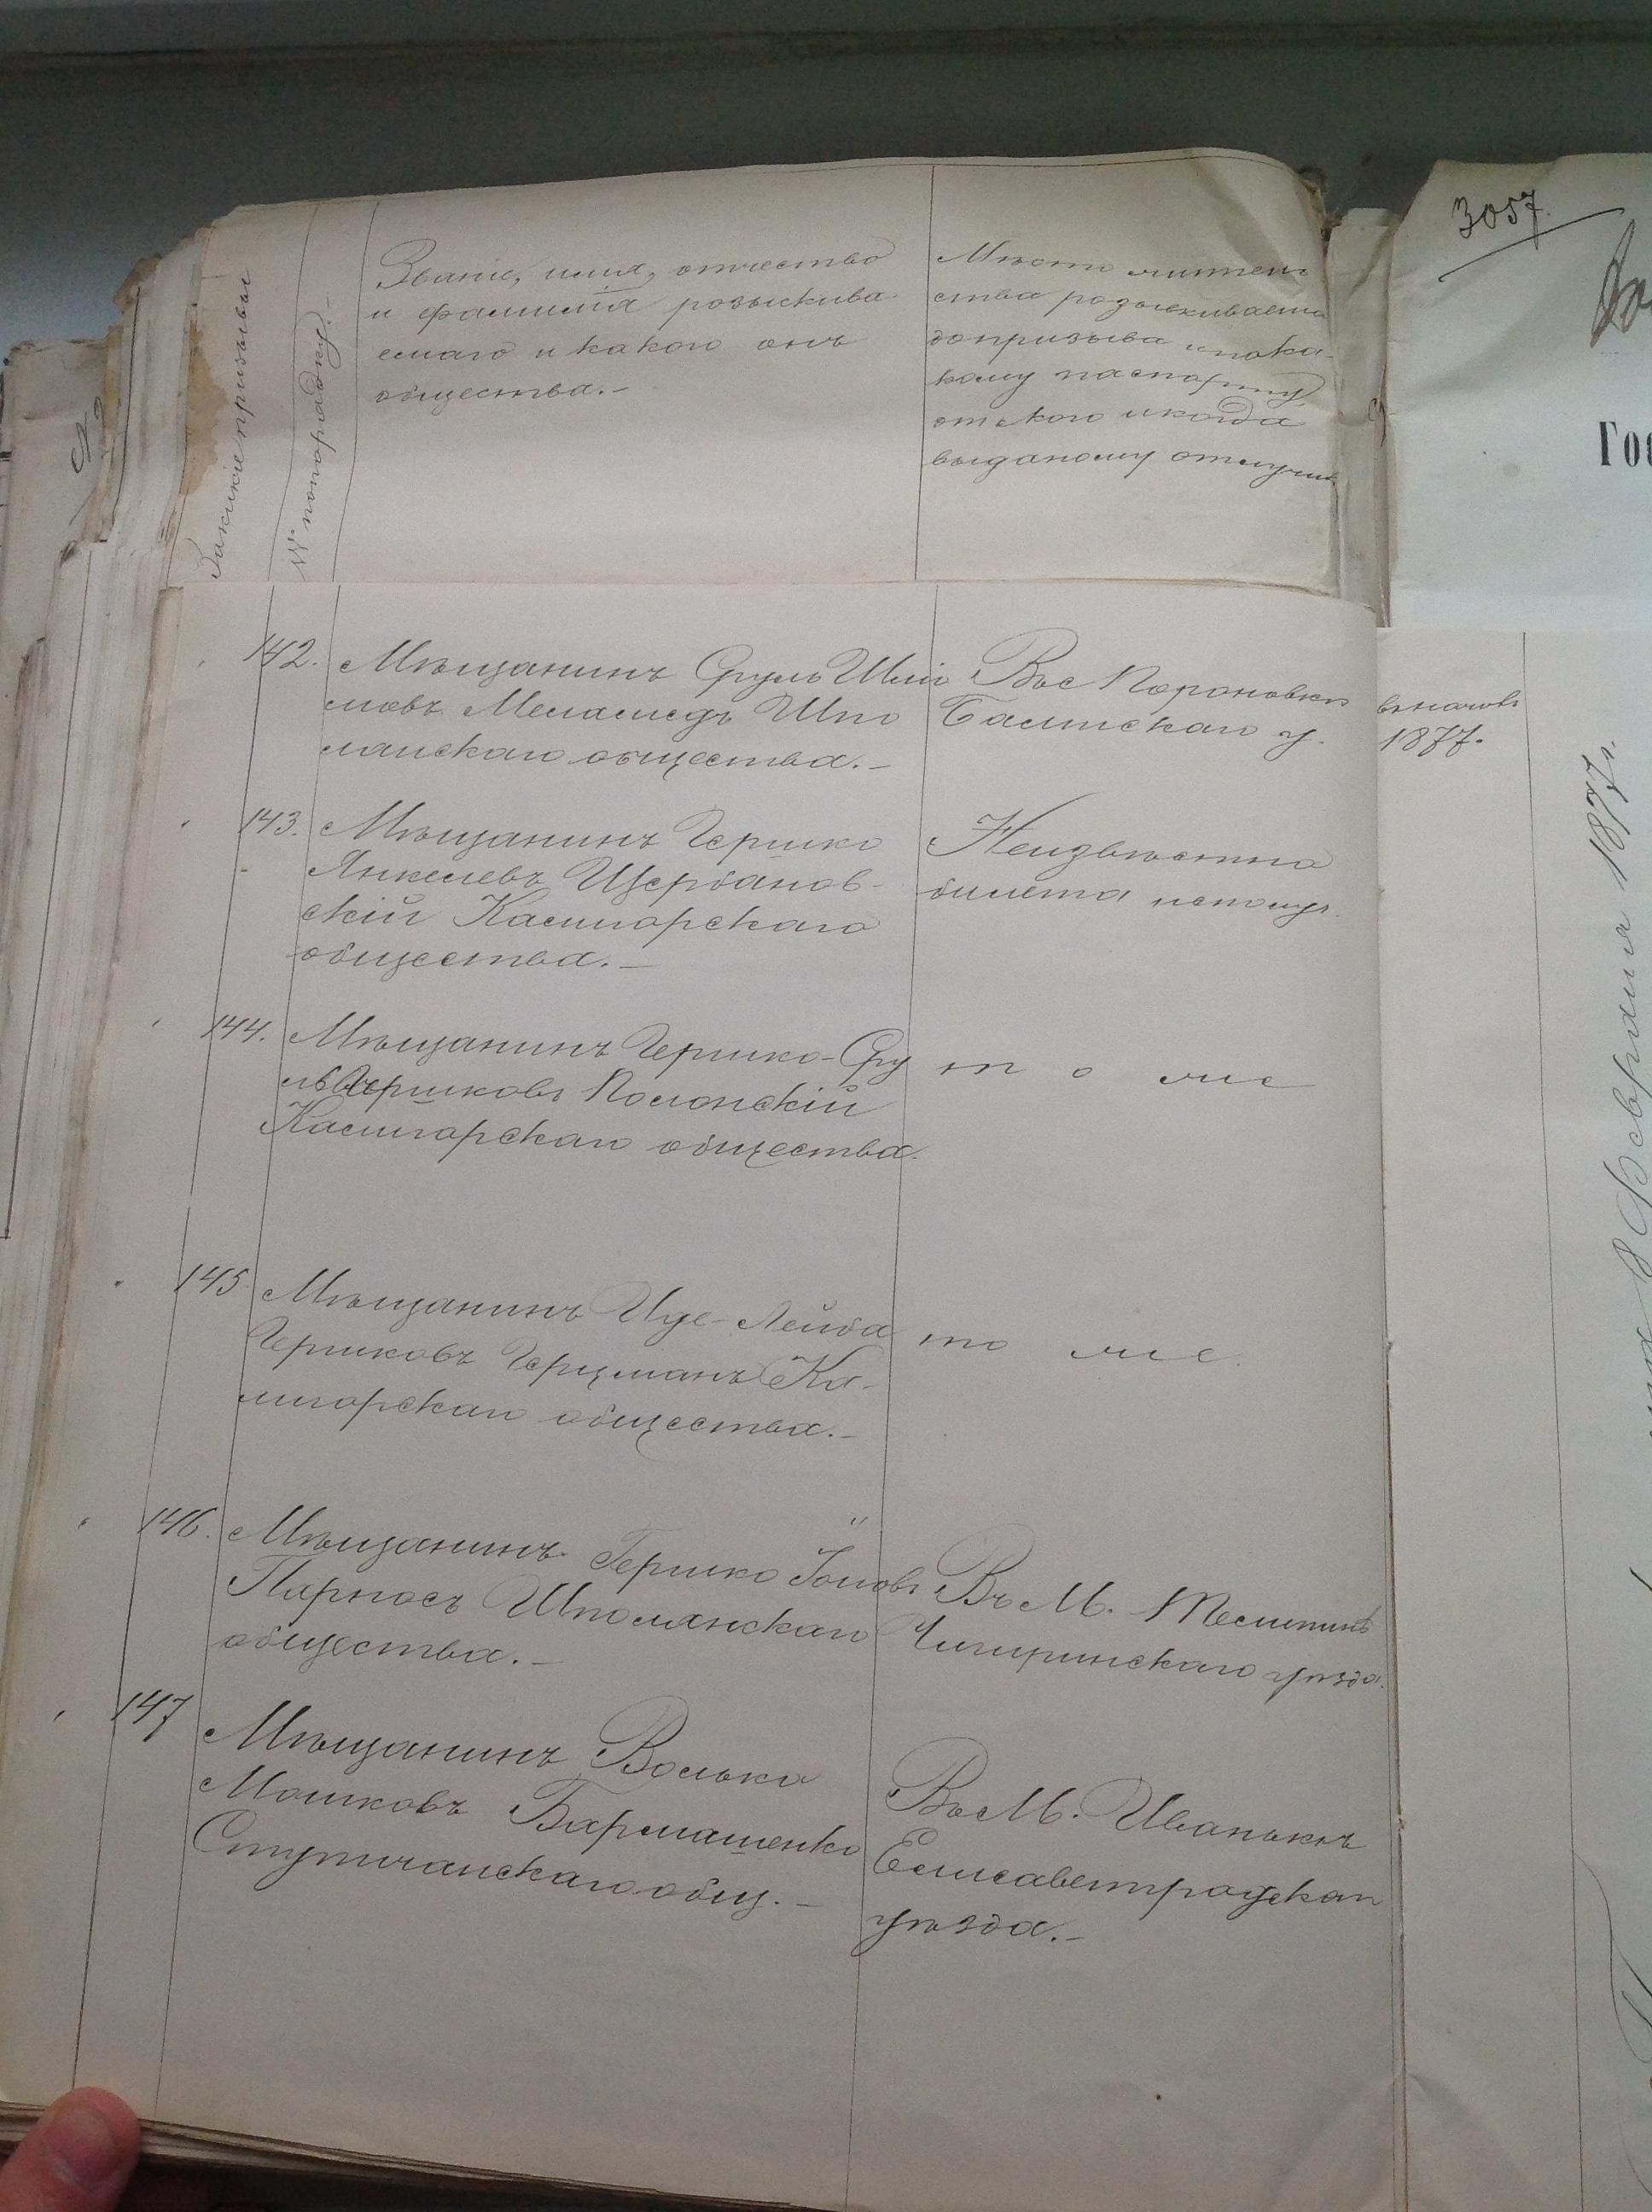 3057.
Званіе, имя, отчество
и фамилія розыскива
емаго и какого онъ
общества.-
Место житель
ства розыскиваема
до призыва и пока-
кому паспорту,
от кого и когда
выданому отлучил
№ по порядку.-
Гос
142. Мѣщанинъ Сруль Шмі
Меламедъ Шпо
лянскаго общества.-
Балтскаго у.
1877.
143. Мѣщанинъ Гершко
Янкелевъ Щербанов-
скій Калигорскаго
общества.-
Неизвѣстно
билета неполуч.
144. Мѣщанинъ Гершко-Сру
ль Гершковъ Полонскій
Калигорскаго общества.
то же
145. Мѣщанинъ Иде-Лейба
Гершковъ Герцманъ Ка-
лигорскаго общества.-
то же.
146. Мѣщанинъ Гершко
Парносъ Шполянскаго
общества.-
Въ М.
Чигиринскаго уѣзда.
147 Мѣщанинъ Волько
Мошковъ Бармашенко
общ.-
Въ М. Иванькѣ
Елисаветградскаго
уѣзда.-
8 Февраля 1877 г.